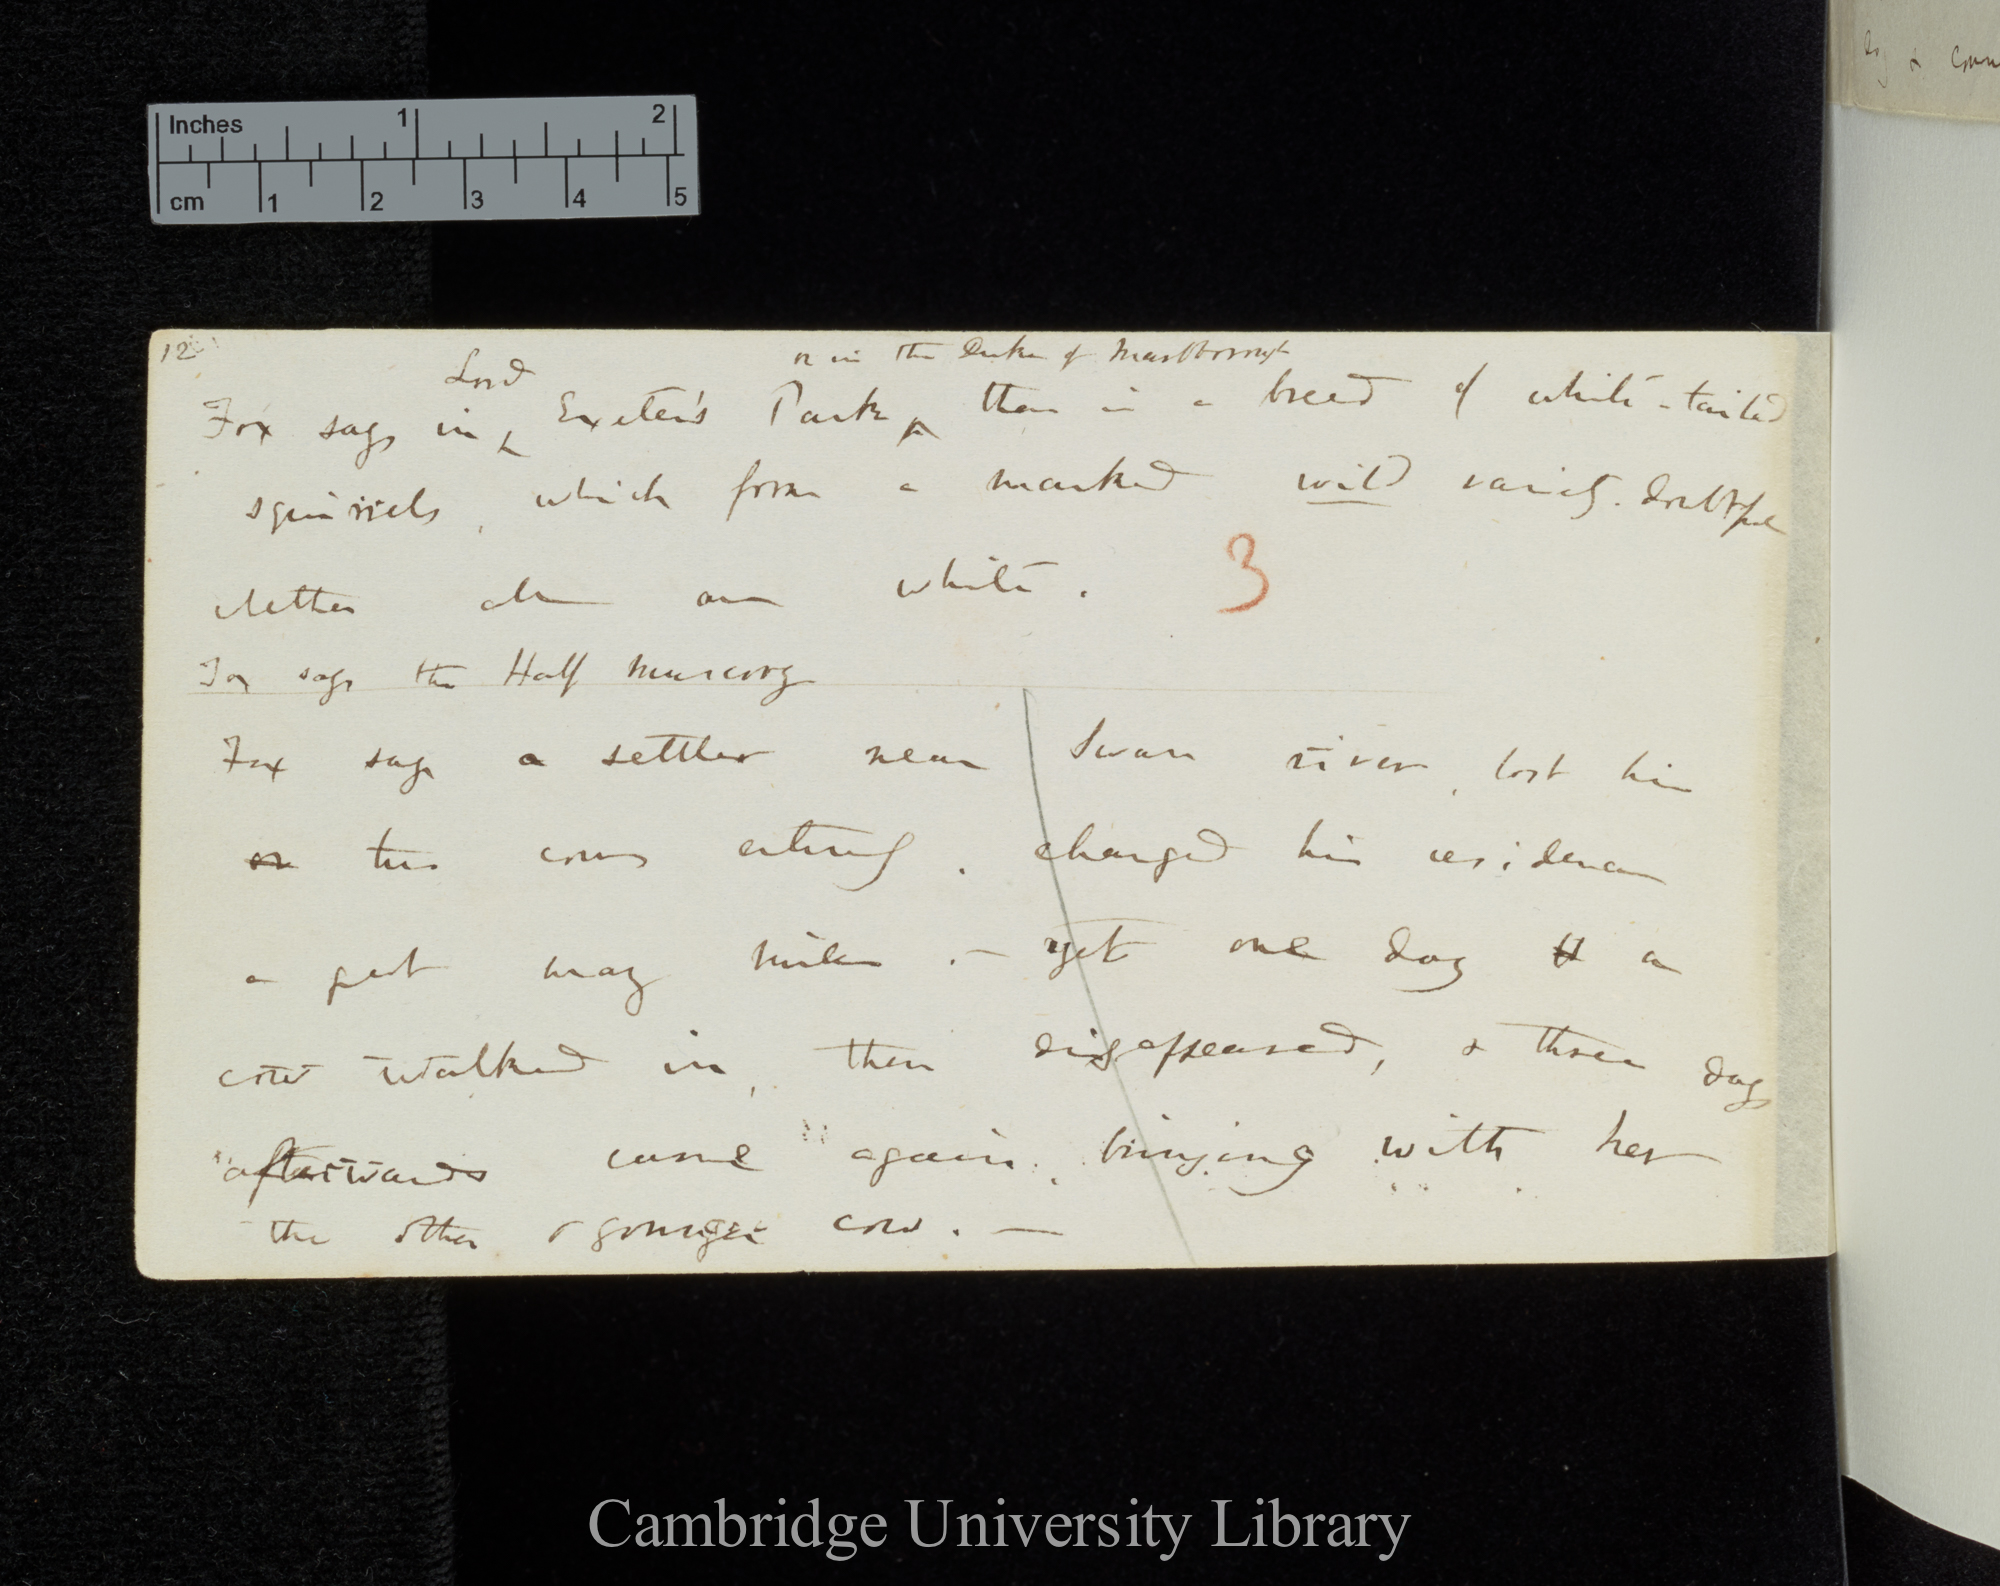 Inches 1 2
cm 1 2 3 4 5
12
Lord or in the Duke of Marlborough
Fox says in Exeter's Park, there is a breed of white-tailed
squirrels, which form a marked wild variety. doubtful
whether ears are white.
3
Fox says the Half Muscovy
Fox says a settler near Swan river, lost his
on two cows entirely. changed his residence
a great many miles.— yet one day H a
cow walked in, then disappeared, & three days
afterwards came again, bringing with her
the other & younger cow.—
Cambridge University Library